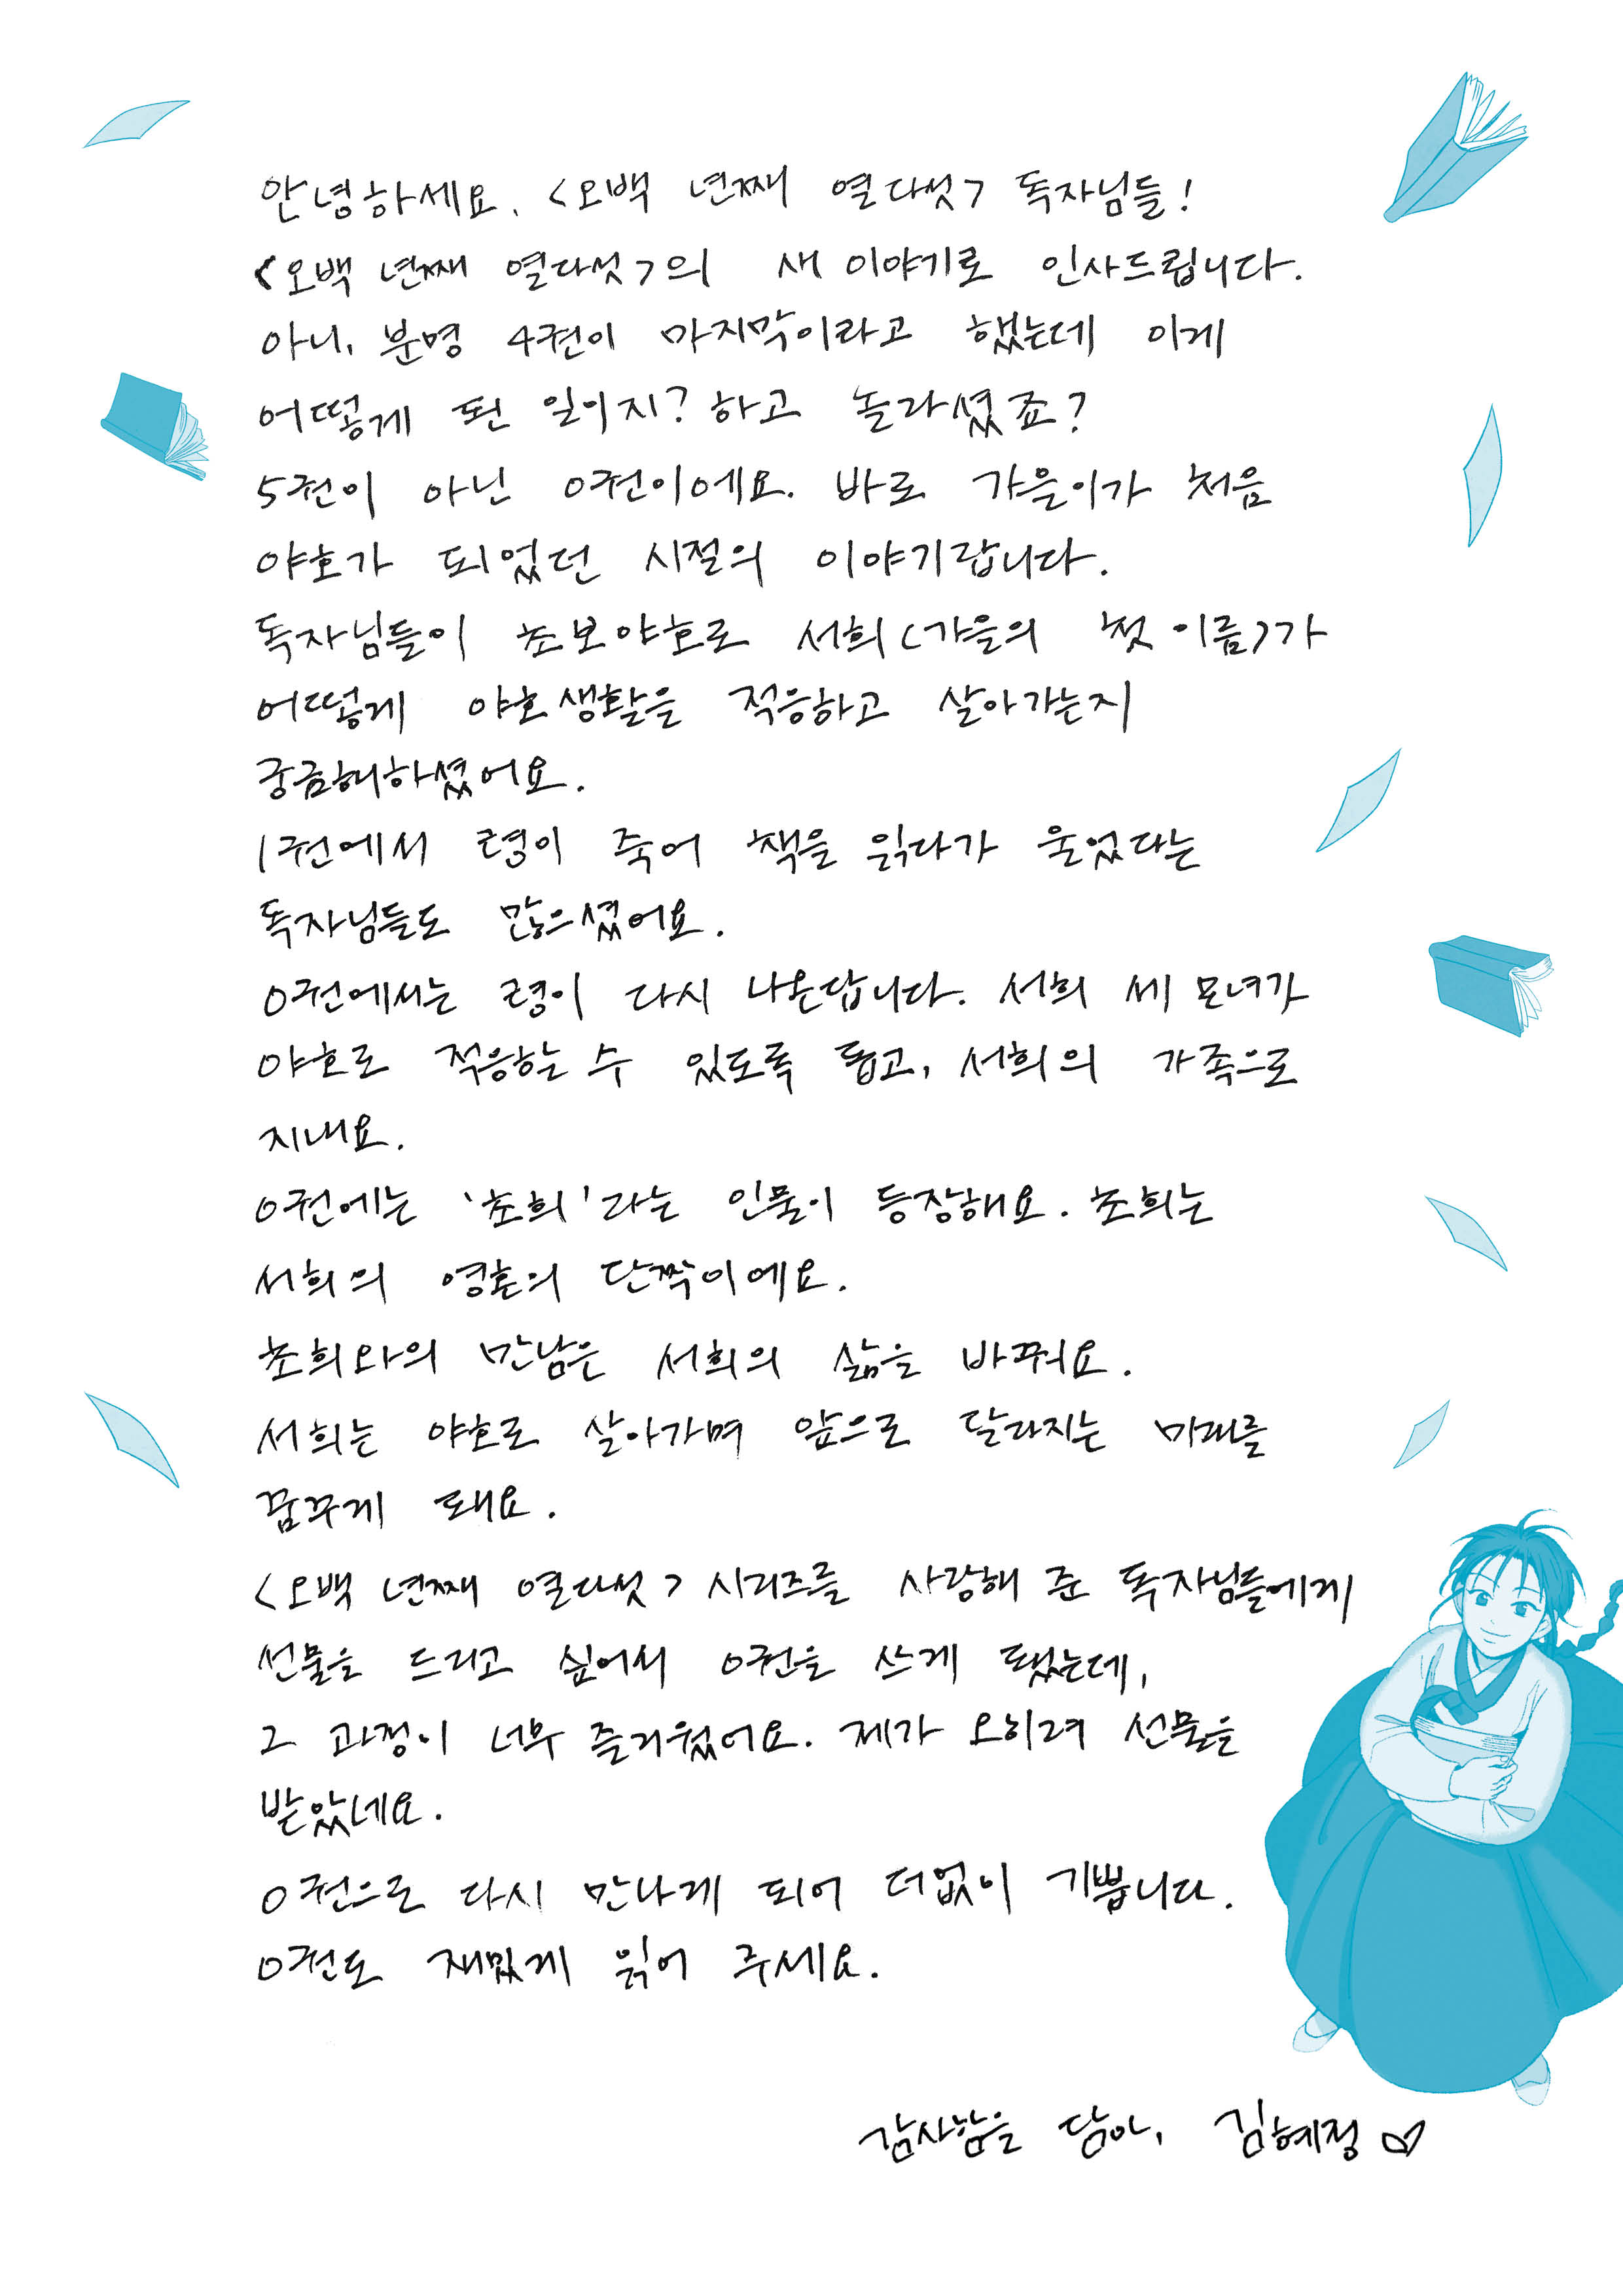 안녕하세요, <오백 년째 열다섯> 독자님들!
<오백 년째 열다섯>의 새 이야기로 인사드립니다.
아니, 분명 4권이 마지막이라고 했는데 이게
어떻게 된 일이지? 하고 놀라셨죠?
5권이 아닌 0권이에요. 바로 가을이가 처음
야호가 되었던 시절의 이야기랍니다.
독자님들이 초보야호로 서희(가을의 첫 이름)가
어떻게 야호 생활을 적응하고 살아가는지
궁금해하셨어요.
1권에서 령이 죽어 책을 읽다가 울었다는
독자님들도 많으셨어요.
0권에서는 령이 다시 나온답니다. 서희 세 모녀가
야호로 적응하는 수 있도록 돕고, 서희의 가족으로
지내요.
0권에는 '초희'라는 인물이 등장해요. 초희는
서희의 영혼의 단짝이에요.
초희와의 만남은 서희의 삶을 바꿔요.
서희는 야호로 살아가며 앞으로 달라지는 미래를
꿈꾸게 돼요.
<오백 년째 열다섯> 시리즈를 사랑해 준 독자님들에게
선물을 드리고 싶어서 0권을 쓰게 됐는데,
그 과정이 너무 즐거웠어요. 제가 오히려 선물을
받았네요.
0권으로 다시 만나게 되어 더없이 기쁩니다.
0권도 재밌게 읽어 주세요.
감사함을 담아, 김혜정 ♡